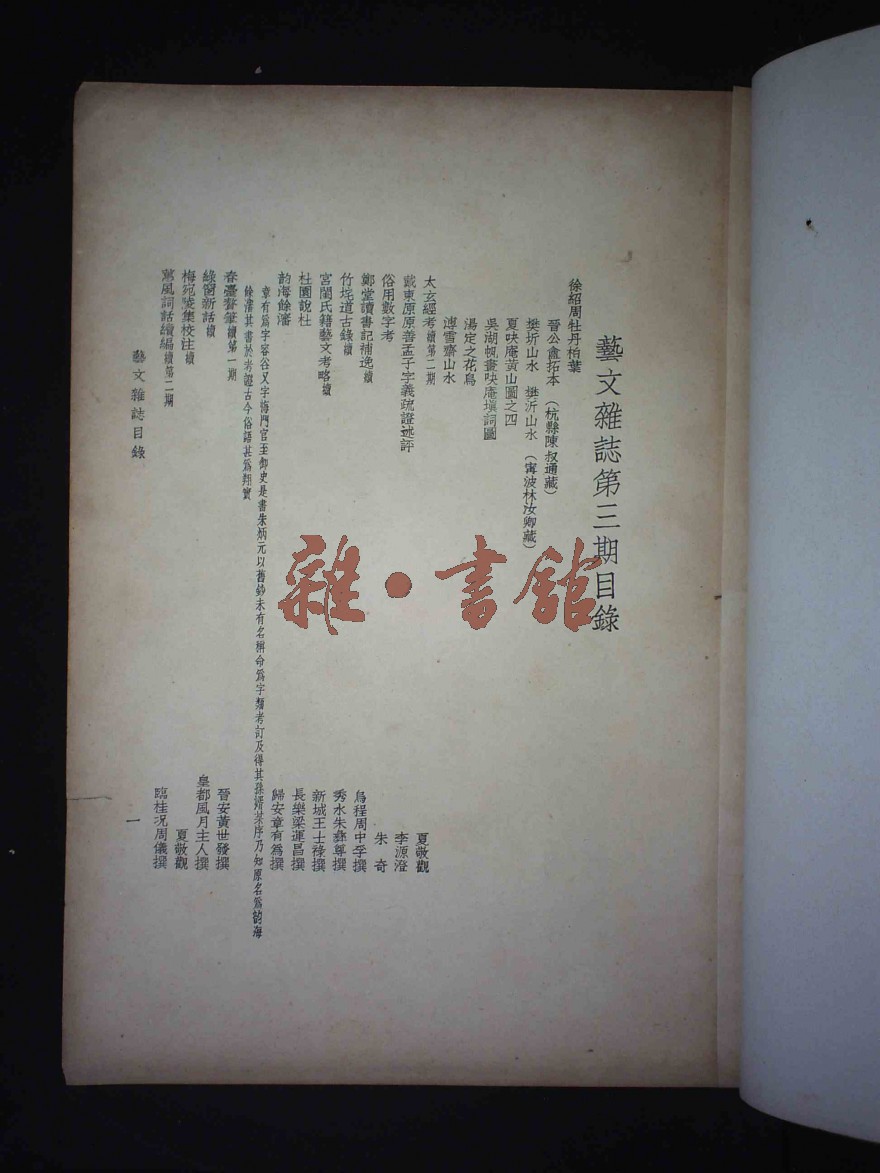 藝文雜誌第三期目錄
徐紹周牡丹柏葉
晉公盦拓本 （杭縣陳叔通藏）
樊圻山水 樊沂山水 （甯波林汝卿藏）
夏吷庵黃山圖之四
吳湖帆畫吷庵填詞圖
湯定之花鳥
溥雪齋山水
太玄經考 續第二期 夏敬觀
戴東原原善孟子字義疏證述評 李源澄
俗用數字考 朱奇
鄭堂讀書記補逸 續 烏程周中孚撰
竹垞道古錄 續 秀水朱彝尊撰
宮閨氏籍藝文考略 續 新城王士祿撰
杜園說杜 長樂梁運昌撰
韵海餘瀋 歸安章有爲撰
章有爲字容谷又字悔門官至御史是書朱炳元以舊鈔未有名稱命爲字類考訂及得其孫婿某序乃知原名爲韵海
餘瀋其書於考證古今俗語甚爲翔實
春臺贅筆 續第一期 晉安黃世發撰
綠窗新話 續 皇都風月主人撰
梅宛陵集校注 續 夏敬觀
蕙風詞話續編 續第二期 臨桂况周儀撰
藝文雜誌目錄 一
雜·書館